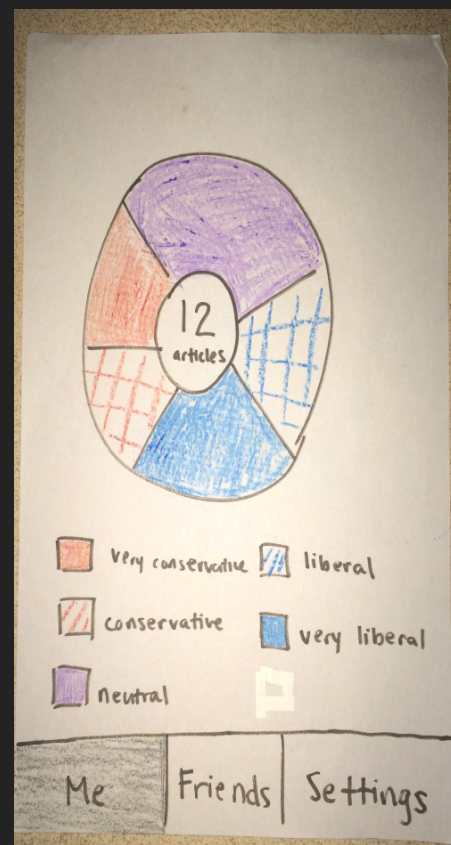 12
articles
very conservative
liberal
conservative
very liberal
neutral
Me
Friends
Settings